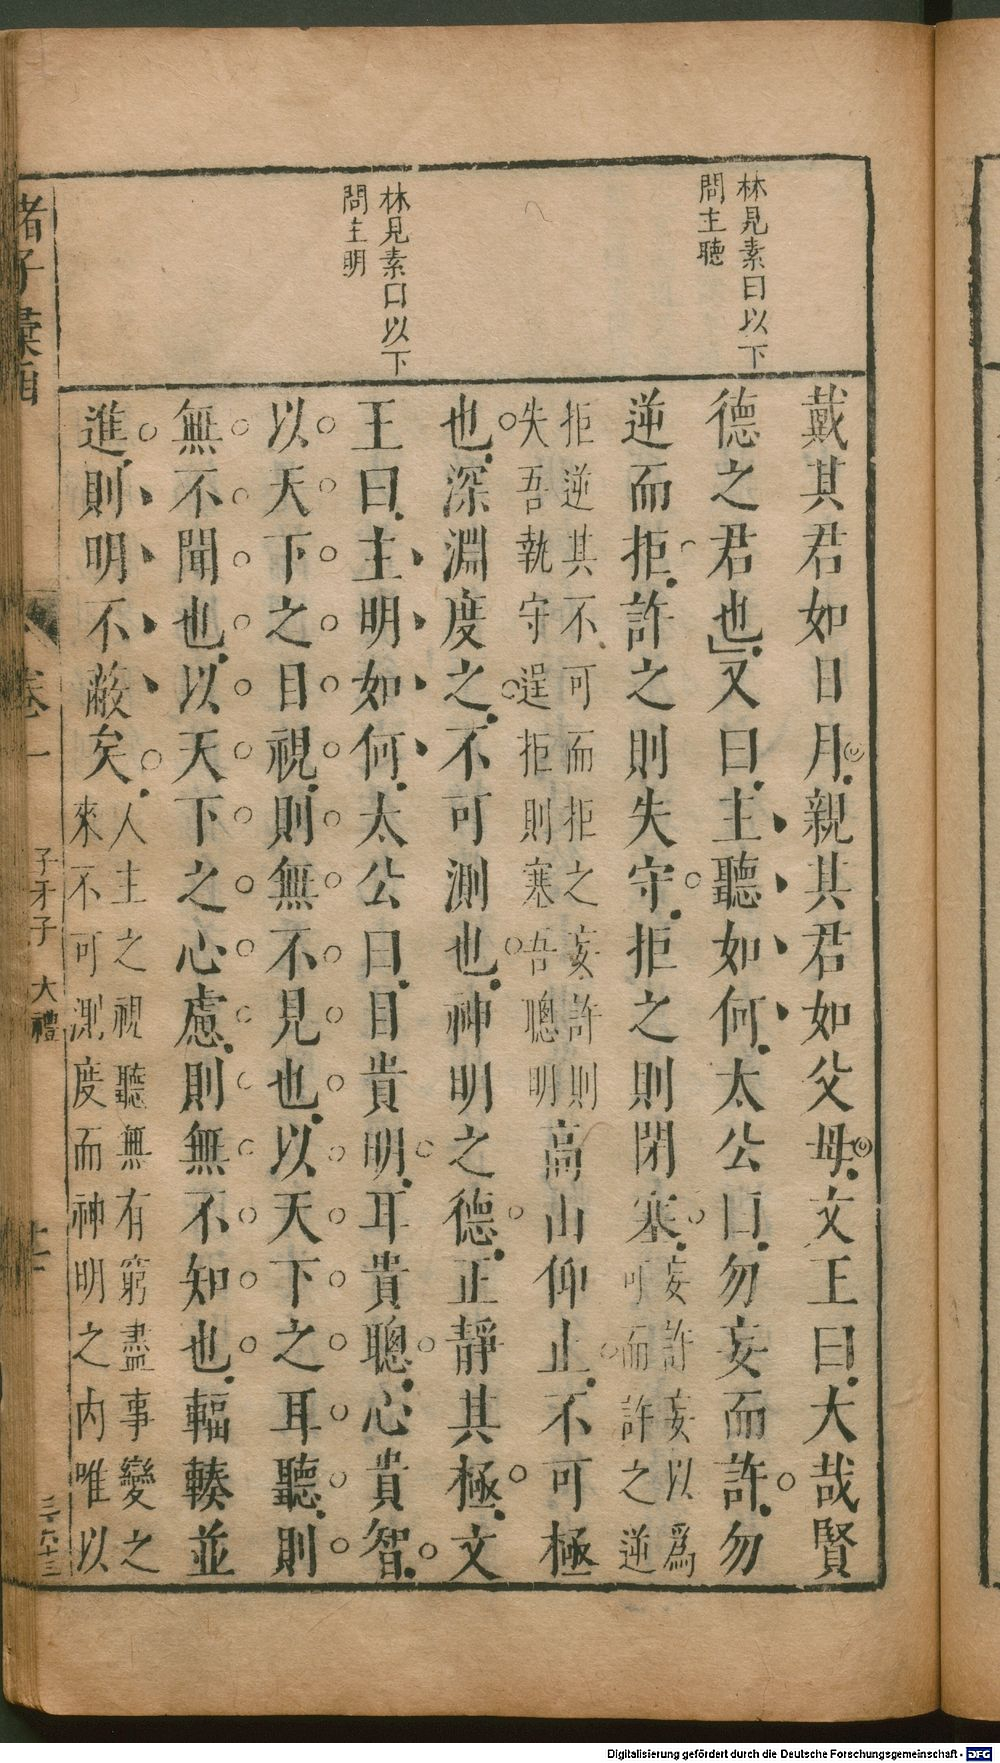 林見素曰以下
問主聽
林見素口以下
問主明
戴其君如日月親其君如父母文王曰大哉賢
德之君也又曰主聽如何太公曰勿妄而許勿
逆而拒許之則失守拒之則閉塞可而許之逆妄許妄以爲
拒逆其不可而拒之妄許則
失吾執守逞拒則塞吾聰明
高山仰止不可極
也深淵度之不可測也神明之德正靜其極文
王曰主明如何太公曰目貴明耳貴聰心貴智
以天下之目視則無不見也以天下之耳聽則
無不聞也以天下之心慮則無不知也輻輳並
進則明不蔽矣
人主之視聽無有窮盡事變之
來不可測度而神明之内唯以
諸子彙
卷一
子牙子 大禮
三六十三
Digitalisierung gefördert durch die Deutsche Forschungsgemeinschaft - DFG